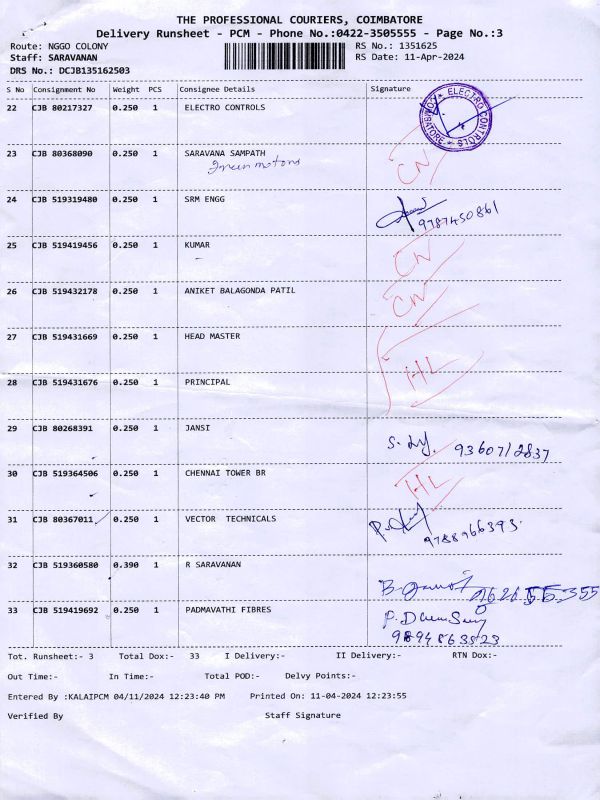 THE PROFESSIONAL COURIERS, COIMBATORE
Delivery Runsheet - PCM - Phone No.:0422-3505555 - Page No.:3
Route: NGGO COLONY RS No.: 1351625
Staff: SARAVANAN RS Date: 11-Apr-2024
DRS No.: DCJB135162503
S No Consignment No Weight PCS Consignee Details Signature
22 CJB 80217327 0.250 1 ELECTRO CONTROLS
ELECTRO CONTROLS * COIMBATORE *
23 CJB 80368090 0.250 1 SARAVANA SAMPATH CN
motors
24 CJB 519319480 0.250 1 SRM ENGG
9787450861
25 CJB 519419456 0.250 1 KUMAR CN
26 CJB 519432178 0.250 1 ANIKET BALAGONDA PATIL CN
27 CJB 519431669 0.250 1 HEAD MASTER
HL
28 CJB 519431676 0.250 1 PRINCIPAL
29 CJB 80268391 0.250 1 JANSI
9360712837
30 CJB 519364506 0.250 1 CHENNAI TOWER BR HL
31 CJB 80367011 0.250 1 VECTOR TECHNICALS
9788966393
32 CJB 519360580 0.390 1 R SARAVANAN
33 CJB 519419692 0.250 1 PADMAVATHI FIBRES
9894863523
Tot. Runsheet:- 3 Total Dox:- 33 I Delivery:- II Delivery:- RTN Dox:-
Out Time:- In Time:- Total POD:- Delvy Points:-
Entered By :KALAIPCM 04/11/2024 12:23:40 PM Printed On: 11-04-2024 12:23:55
Verified By Staff Signature